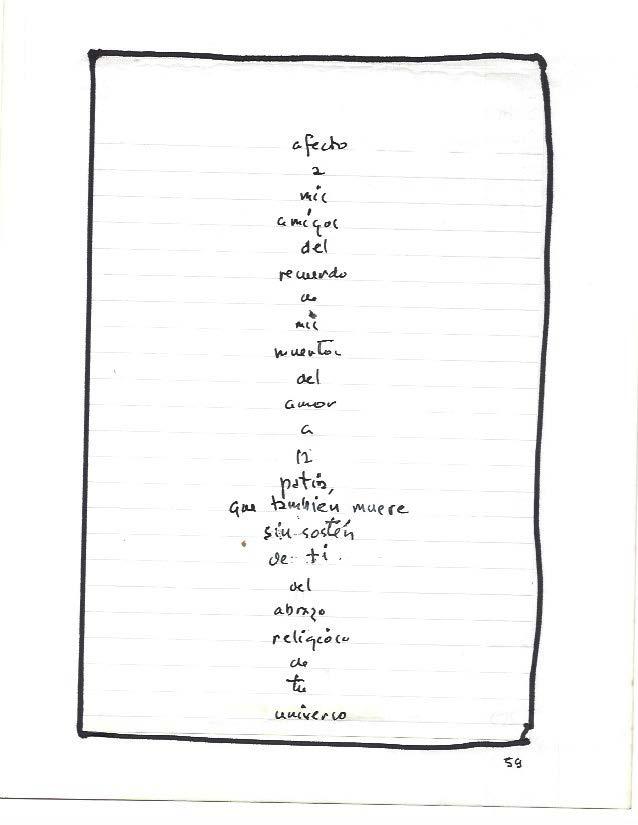 afecto
a
mis
amigos
del
recuerdo
de
mis
muertos
del
amor
a
la
patria,
que también muere
sin sostén
de ti.
del
abrazo
religioso
de
tu
universo
59